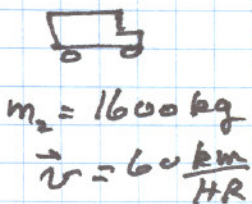 m₂ = 1600 kg
v⃗ = 60 km/HR